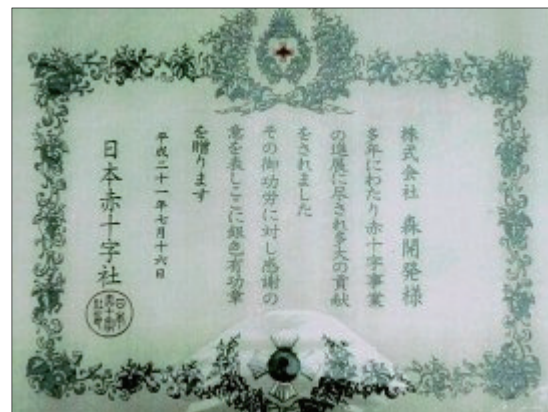 株式会社 森開発様
多年にわたり赤十字事業
の進展に尽され多大の貢献
をされました
その御功労に対し感謝の
意を表しここに銀色有功章
を贈ります
平成二十一年七月十六日
日本赤十字社